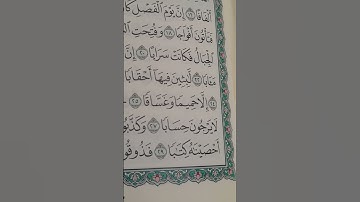 أَلْفَافًا ۝١٦ إِنَّ يَوْمَ الْفَصْلِ كَا
فَتَأْتُونَ أَفْوَاجًا ۝١٨ وَفُتِحَتِ
الْجِبَالُ فَكَانَتْ سَرَابًا ۝٢٠ إِنَّ
مَـَٔابًا ۝٢٢ لَّٰبِثِينَ فِيهَا أَحْقَابًا
۝٢٤ إِلَّا حَمِيمًا وَغَسَّاقًا ۝٢٥
لَا يَرْجُونَ حِسَابًا ۝٢٧ وَكَذَّبُو
أَحْصَيْنَٰهُ كِتَٰبًا ۝٢٩ فَذُوقُو